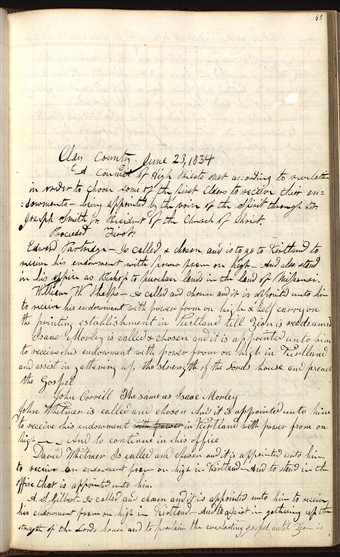 41
Clay County June 23, 1834
A Council of High Priests met according to revelation
in order to choose some of the first Elders to receive their en-
dowments - being appointed by the voice of the Spirit through bro
Joseph Smith Jr President of the Church of Christ
Proceeded First
Edward Partridge - Is called & chosen and is to go to Kirtland to
receive his endowment with power from on high - And also stand
in his office as Bishop to purchase lands in the Land of Missouri.
William W. Phelps - Is called and chosen and it is appointed unto him
to receive his endowment with power from on high & help carry on
the printing establishment in Kirtland till Zion is redeemed
Isaac Morley is called & chosen and it is appointed unto him
to receive his endowment with power from on high in Kirtland
and assist in gathering up the strength of the Lords house and preach
the Gospel
John Corrill The same as Isaac Morley
John Whitmer is called and chosen and it is appointed unto him
to receive his endowment with power in Kirtland with power from on
high - And to continue in his office
David Whitmer Is called and chosen and it is appointed unto him
to receive his endowment from on high in Kirtland - And to stand in the
office that is appointed unto him
A. S. Gilbert - Is called and chosen and it is appointed unto him to receive
his endowment from on high in Kirtland And to assist in gathering up the
strength of the Lords house and to proclaim the everlasting gospel until Zion is